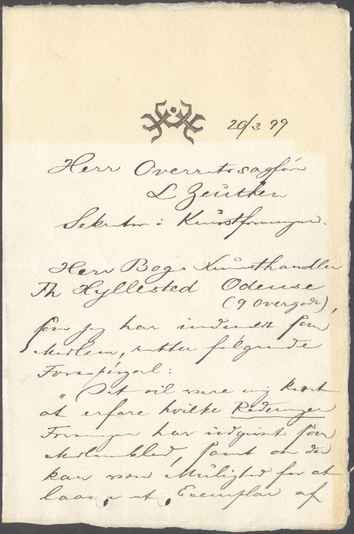 20/3 99
Herr Overretssagfør
L Zeuthen
Sekretær i Kunstforeningen.
Herr Bog & Kunsthandler
Th Hyllested Odense
(9 Overgade),
som jeg har indmeldt som
Medlem, retter følgende
Forespørgsel:
"Det vil være mig kært
at erfare hvilke Raderinger
Foreningen har udgivet som
Medlemsblad, samt om der
kan være Mulighed for at
laane et Exemplar af